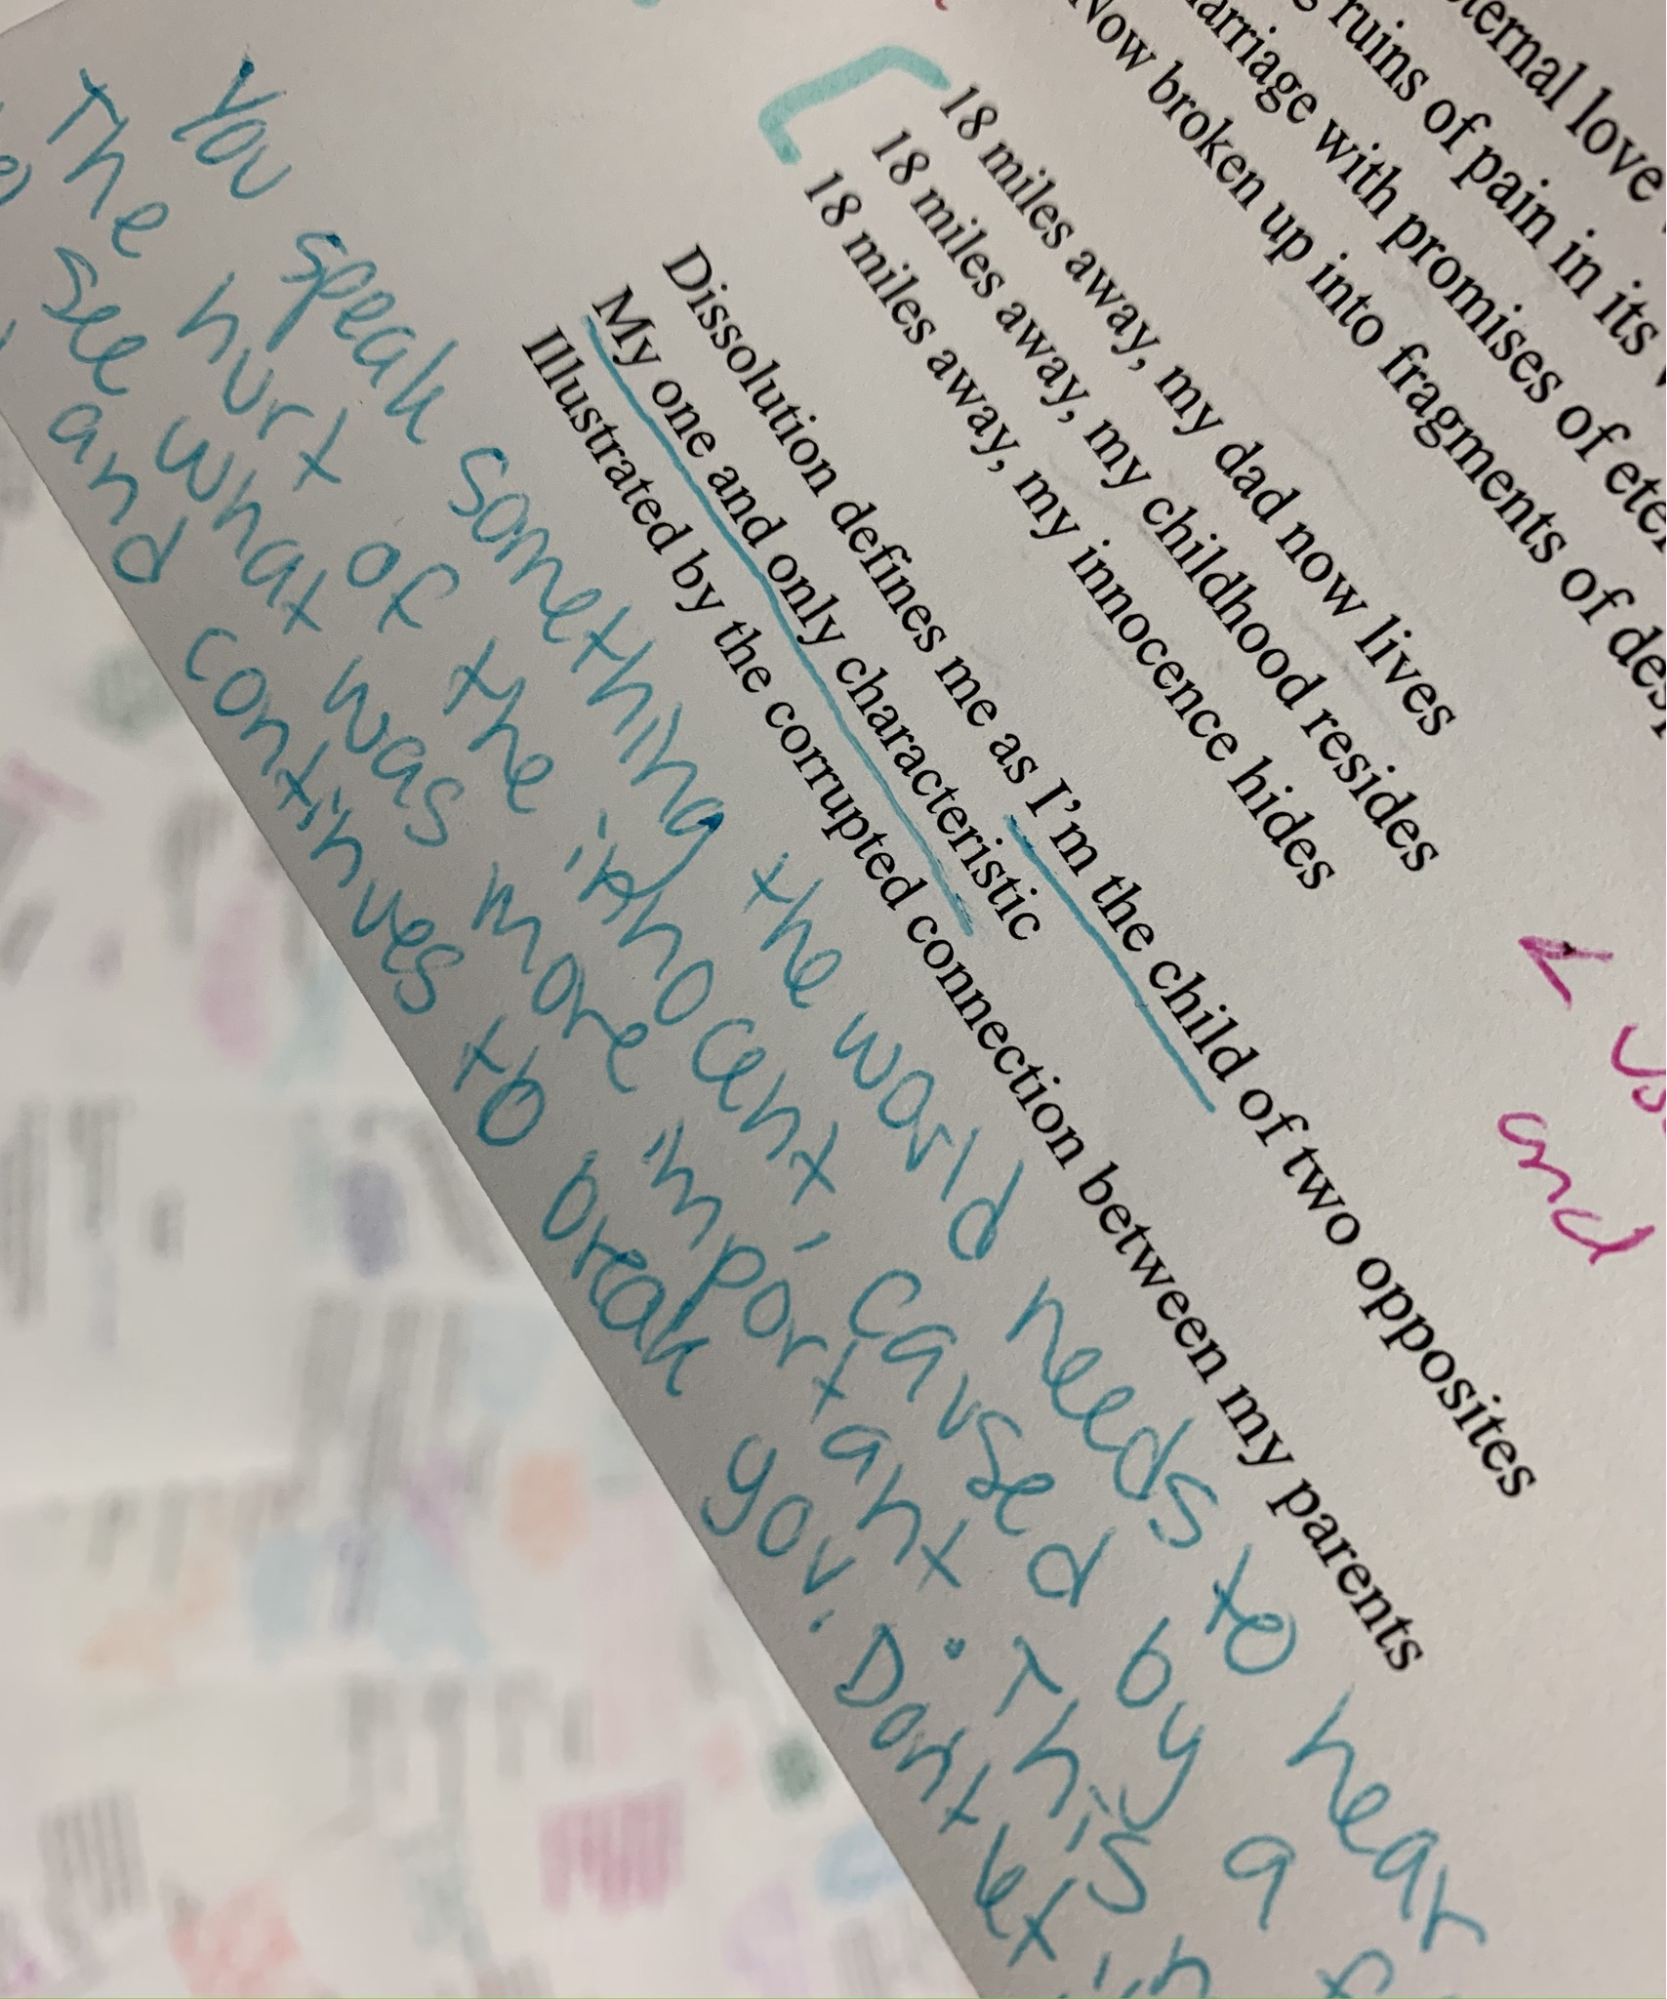 ternal love
ruins of pain in its
arriage with promises of eter
Now broken up into fragments of desp
18 miles away, my dad now lives
18 miles away, my childhood resides
18 miles away, my innocence hides
Dissolution defines me as I'm the child of two opposites
My one and only characteristic
Illustrated by the corrupted connection between my parents
You speak something the world needs to hear
The hurt of the innocent, caused by a
see what was more important. This
and continues to break you. Don't let
and